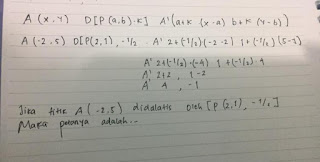 A (x, y) D[P(a,b).k] A'(a+k (x-a) b+k (y-b))
A (-2,5) D[P(2,1), -1/2 . A' 2+(-1/2)(-2-2) 1+(-1/2)(5-1)
A' 2+(-1/2).(-4) 1+(-1/2).4
A' 2+2 , 1-2
A' 4 , -1
Jika titik A (-2.5) didalatis oleh [P (2,1), -1/2]
Maka petanya adalah...